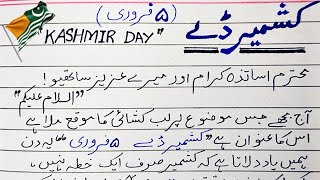 کشمیر ڈے
(۵ فروری)
"KASHMIR DAY"
محترم اساتذہ کرام اور میرے عزیز ساتھیو!
"السلام علیکم"
آج مجھے جس موضوع پر لب کشائی کا موقع ملا ہے
اس کا عنوان ہے "کشمیر ڈے ۵ فروری" یہ دن
ہمیں یاد دلاتا ہے کہ کشمیر صرف ایک خطہ نہیں،